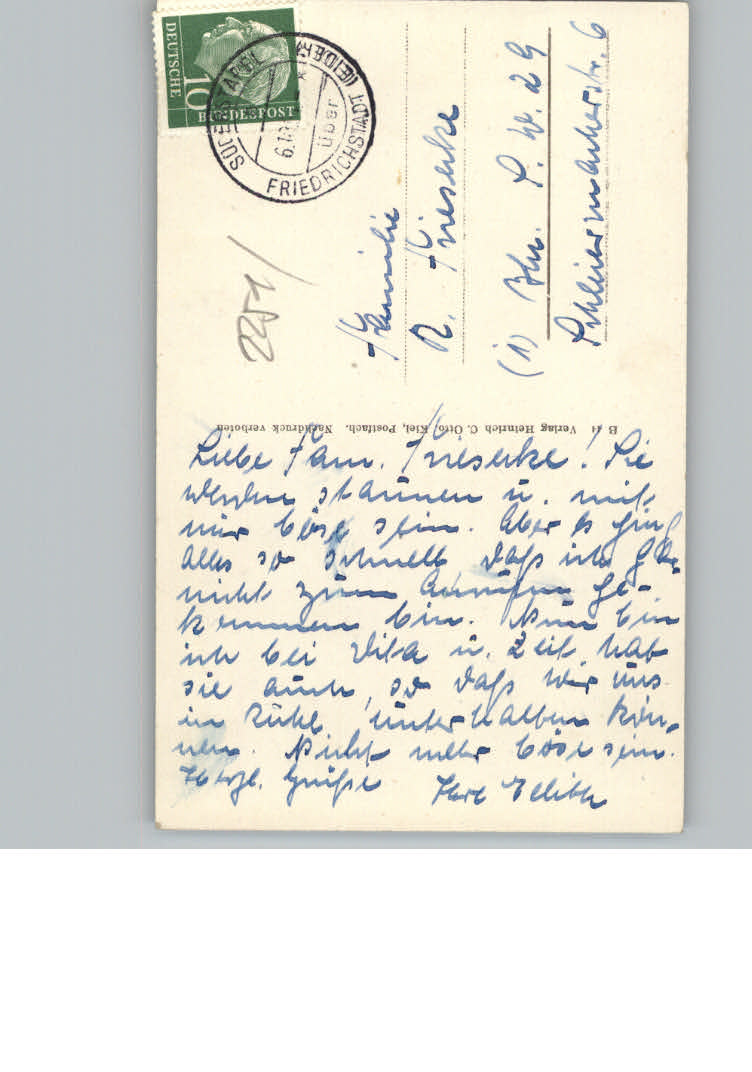 DEUTSCHE
10
BUNDESPOST
SÜDERSTAPEL
über
FRIEDRICHSTADT
2251
Familie
R. Frieseke
(1) Bln. S. W. 29
Schleiermacherstr. 6
B 41 Verlag Heinrich C. Otto, Kiel, Postfach. Nachdruck verboten
Liebe Fam. Frieseke! Sie
werden staunen u. mit
mir böse sein. Aber es ging
alles so schnell daß ich gar
nicht zum Anrufen ge-
kommen bin. Nun bin
ich bei Dita u. Zeit hat
sie auch, so daß wir uns
in Ruhe unterhalten kön-
nen. Nicht mehr böse sein.
Herzl. Grüße Ihre